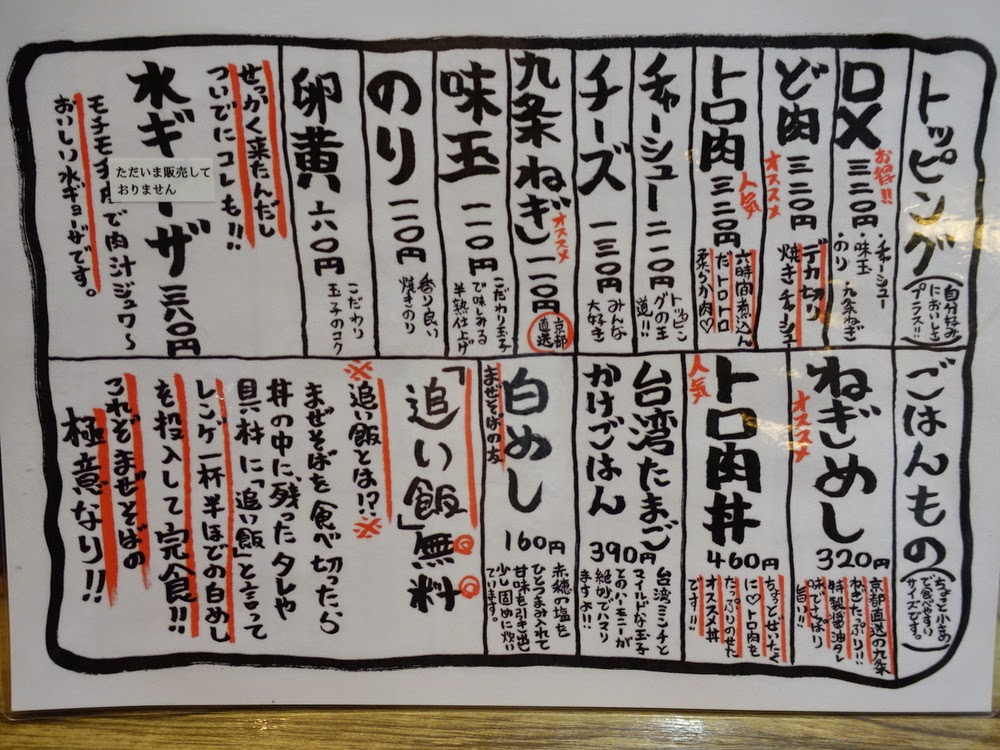 トッピング
(自分好み
においしさ
プラス!!)
DX
三二〇円
お得!!
・チャーシュー
・味玉
・のり ・九条ねぎ
ど肉
三二〇円
オススメ
デカ切り
焼きチャーシュー
トロ肉
三三〇円
人気
六時間煮込ん
だトロトロ
柔らか肉♡
チャーシュー
二一〇円
トッピン
グの王
道!!
チーズ
一三〇円
みんな
大好き
九条ねぎ
一二〇円
オススメ
京都
直送
味玉
一一〇円
こだわり玉子
で味しみる
半熟仕上げ
のり
一一〇円
香り良い
焼きのり
卵黄
六〇円
こだわり
玉子のコク
せっかく来たんだし
ついでにコレも!!
水ギョーザ
三八〇円
ただいま販売して
おりません
モチモチ皮で肉汁ジュワ〜
おいしい水ギョーザです。
ごはんもの
(ちょっと小さめ
で食べやすい
サイズです。)
ねぎめし
オススメ
320円
京都直送の九条
ねぎたっぷり!!
特製醤油タレ
味でさっぱり
旨い!!
トロ肉丼
人気
460円
ちょっとぜいたく
に♡トロ肉を
たっぷりのせた
オススメ丼
です!!
台湾たまご
かけごはん
390円
台湾ミンチと
マイルドな玉子
とのハーモニーが
絶妙でスリ
ますよ!!
白めし
まぜそばの友
160円
赤穂の塩を
ひとつまみ入れて
甘味を引き出し
少し固めに炊い
ています。
「追い飯」無料
※追い飯とは!?※
まぜそばを食べ切ったら
丼の中に、残ったタレや
具材に「追い飯」と言って
レンゲ一杯半ほどの白めし
を投入して完食!!
これぞまぜそばの
極意なり!!